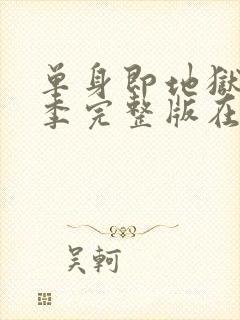 单身即地獄
季完整版在
吴軻